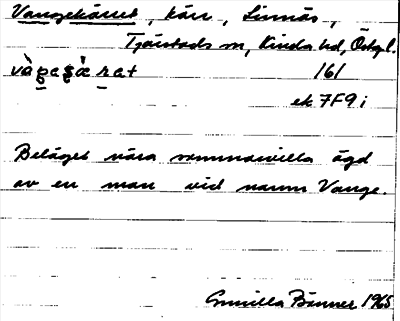 Vangekärret, kärr, Linnäs,
Tjärstads sn, Kinda hd, Östgl.
161
ek 7F9i
Beläget nära sommarvilla ägd
av en man vid namn Vange.
Gunilla Bönner 1965